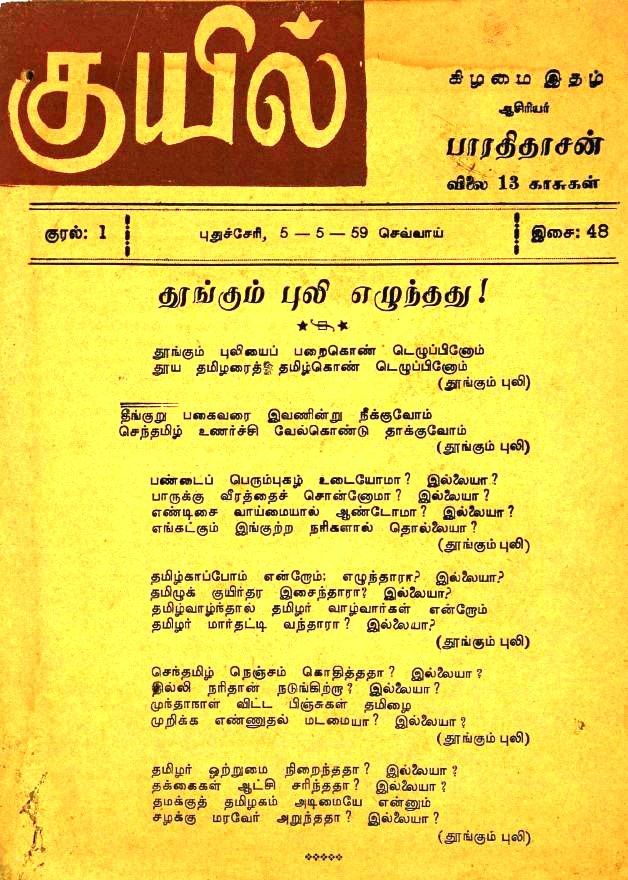 குயில்
கிழமை இதழ்
ஆசிரியர்
பாரதிதாசன்
விலை 13 காசுகள்
குரல்: 1
புதுச்சேரி, 5 — 5 — 59 செவ்வாய்
இசை: 48
தூங்கும் புலி எழுந்தது!
தூங்கும் புலியைப் பறைகொண் டெழுப்பினோம்
தூய தமிழரைத் தமிழ்கொண் டெழுப்பினோம்
(தூங்கும் புலி)
தீங்குறு பகைவரை இவணின்று நீக்குவோம்
செந்தமிழ் உணர்ச்சி வேல்கொண்டு தாக்குவோம்
(தூங்கும் புலி)
பண்டைப் பெரும்புகழ் உடையோமா? இல்லையா?
பாருக்கு வீரத்தைச் சொன்னோமா? இல்லையா?
எண்டிசை வாய்மையால் ஆண்டோமா? இல்லையா?
எங்கட்கும் இங்குற்ற நரிகளால் தொல்லையா?
(தூங்கும் புலி)
தமிழ்காப்போம் என்றோம்; எழுந்தாரா? இல்லையா?
தமிழுக் குயிர்தர இசைந்தாரா? இல்லையா?
தமிழ்வாழ்ந்தால் தமிழர் வாழ்வார்கள் என்றோம்
தமிழர் மார்தட்டி வந்தாரா? இல்லையா?
(தூங்கும் புலி)
செந்தமிழ் நெஞ்சம் கொதித்ததா? இல்லையா?
தில்லி நரிதான் நடுங்கிற்றா? இல்லையா?
முந்தாநாள் விட்ட பிஞ்சுகள் தமிழை
முறிக்க எண்ணுதல் மடமையா? இல்லையா?
(தூங்கும் புலி)
தமிழர் ஒற்றுமை நிறைந்ததா? இல்லையா?
தக்கைகள் ஆட்சி சரிந்ததா? இல்லையா?
தமக்குத் தமிழகம் அடிமையே என்னும்
சழக்கு மரவேர் அறுந்ததா? இல்லையா?
(தூங்கும் புலி)